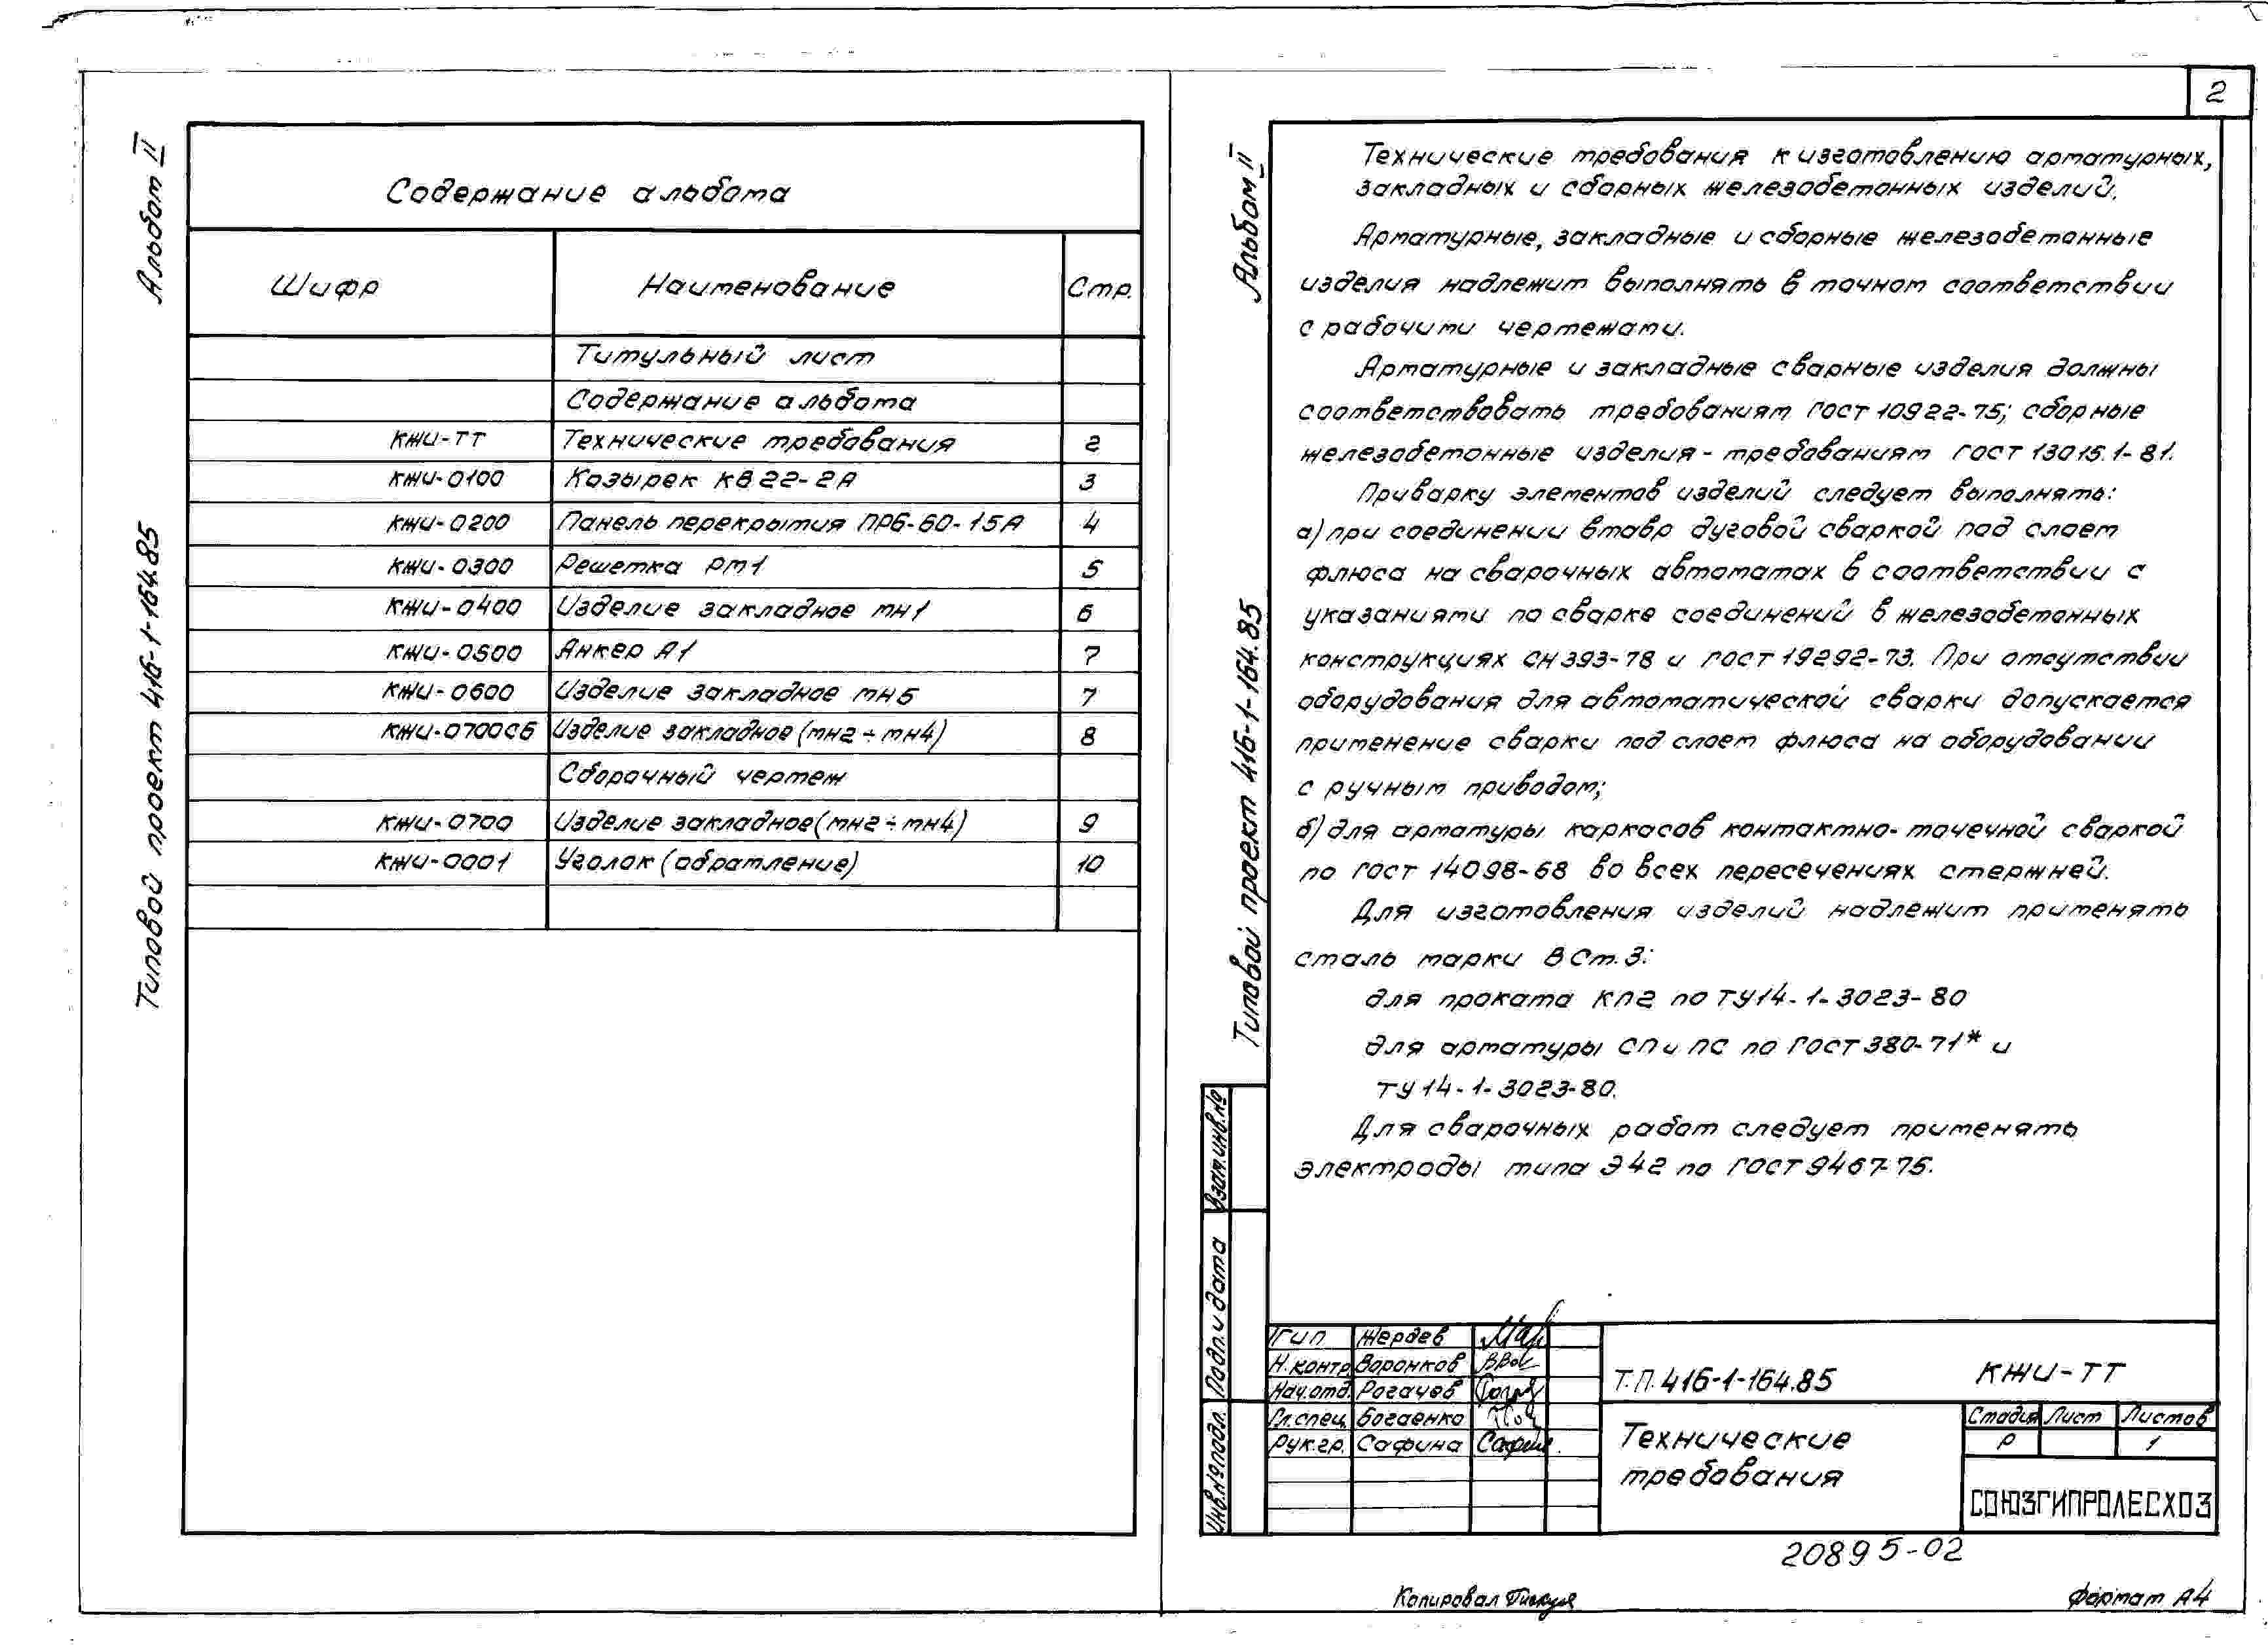 2
Альбом II
Типовой проект 416-1-164.85
Содержание альбома
Шифр Наименование Стр.
Титульный лист
Содержание альбома
КЖИ-ТТ Технические требования 2
КЖИ-0100 Козырек КВ 22-2А 3
КЖИ-0200 Панель перекрытия ПР6-60-15А 4
КЖИ-0300 Решетка РМ1 5
КЖИ-0400 Изделие закладное МН1 6
КЖИ-0500 Анкер А1 7
КЖИ-0600 Изделие закладное МН5 7
КЖИ-0700СБ Изделие закладное (МН2÷МН4) 8
Сборочный чертеж
КЖИ-0700 Изделие закладное (МН2÷МН4) 9
КЖИ-0001 Уголок (обрамление) 10
Альбом II
Типовой проект 416-1-164.85
Технические требования к изготовлению арматурных,
закладных и сборных железобетонных изделий.
Арматурные, закладные и сборные железобетонные
изделия надлежит выполнять в точном соответствии
с рабочими чертежами.
Арматурные и закладные сварные изделия должны
соответствовать требованиям ГОСТ 10922-75; сборные
железобетонные изделия - требованиям ГОСТ 13015.1-81.
Приварку элементов изделий следует выполнять:
а) при соединении втавр дуговой сваркой под слоем
флюса на сварочных автоматах в соответствии с
указаниями по сварке соединений в железобетонных
конструкциях СН 393-78 и ГОСТ 19292-73. При отсутствии
оборудования для автоматической сварки допускается
применение сварки под слоем флюса на оборудовании
с ручным приводом;
б) для арматуры каркасов контактно-точечной сваркой
по ГОСТ 14098-68 во всех пересечениях стержней.
Для изготовления изделий надлежит применять
сталь марки ВСт.3:
для проката КП2 по ТУ14-1-3023-80
для арматуры СП и ПС по ГОСТ 380-71* и
ТУ 14-1-3023-80.
Для сварочных работ следует применять
электроды типа Э42 по ГОСТ 9467-75.
Взам.инв.№
Подп. и дата
Инв.№ подл.
ГИП Жердев
Н.контр. Воронков
Нач.отд. Рогачев
Гл.спец. Богаенко
Рук.гр. Сафина
Т.П. 416-1-164.85 КЖИ-ТТ
Технические
требования
Стадия Лист Листов
Р 1
СОЮЗГИПРОЛЕСХОЗ
20895-02
Копировал
Формат А4